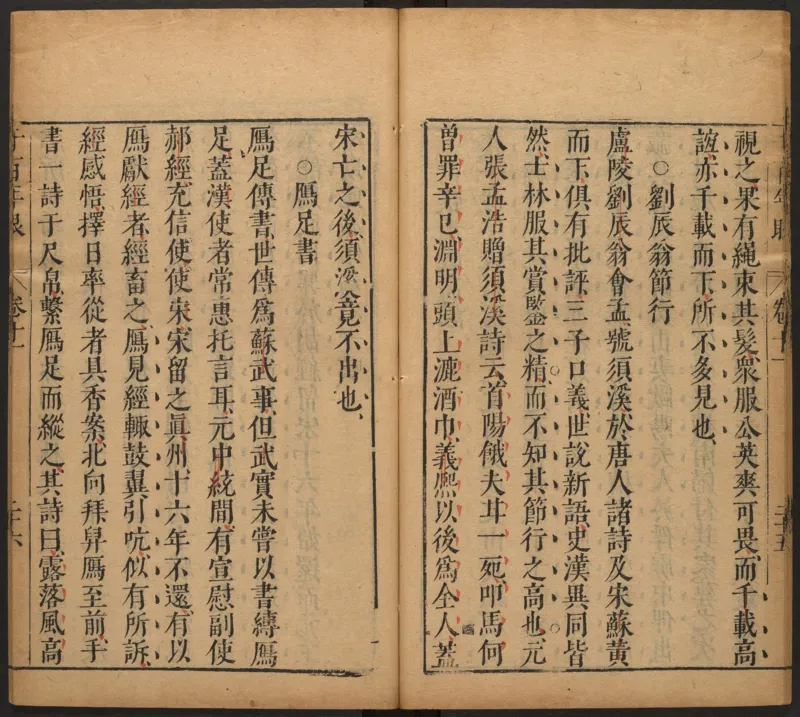 視之果有繩束其髮衆服公英爽可畏而千載高
誼亦千載而下所不多見也
○劉辰翁節行
廬陵劉辰翁會孟號須溪於唐人諸詩及宋蘇黃
而下俱有批評三子口義世說新語史漢異同皆
然士林服其賞鑒之精而不知其節行之高也元
人張孟浩贈須溪詩云首陽餓夫甘一死叩馬何
曾罪辛巳淵明頭上漉酒巾義熙以後爲全人蓋
宋亡之後須溪竟不出也
○鴈足書
鴈足傳書世傳爲蘇武事但武實未嘗以書縛鴈
足蓋漢使者常惠托言耳元中統間有宣慰副使
郝經充信使使宋宋留之眞州十六年不還有以
鴈獻經者經畜之鴈見經輒鼓翼引吭似有所訴
經感悟擇日率從者具香案北向拜舁鴈至前手
書一詩于尺帛繫鴈足而縱之其詩曰露落風高
千百年眼 卷十一 二十六